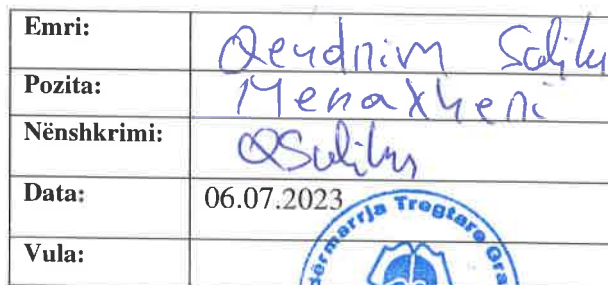 Emri: Qendrim Salihu
Pozita: Menaxheri
Nënshkrimi: QSalihu
Data: 06.07.2023
Ndërmarrja Tregtare Gra
Vula: